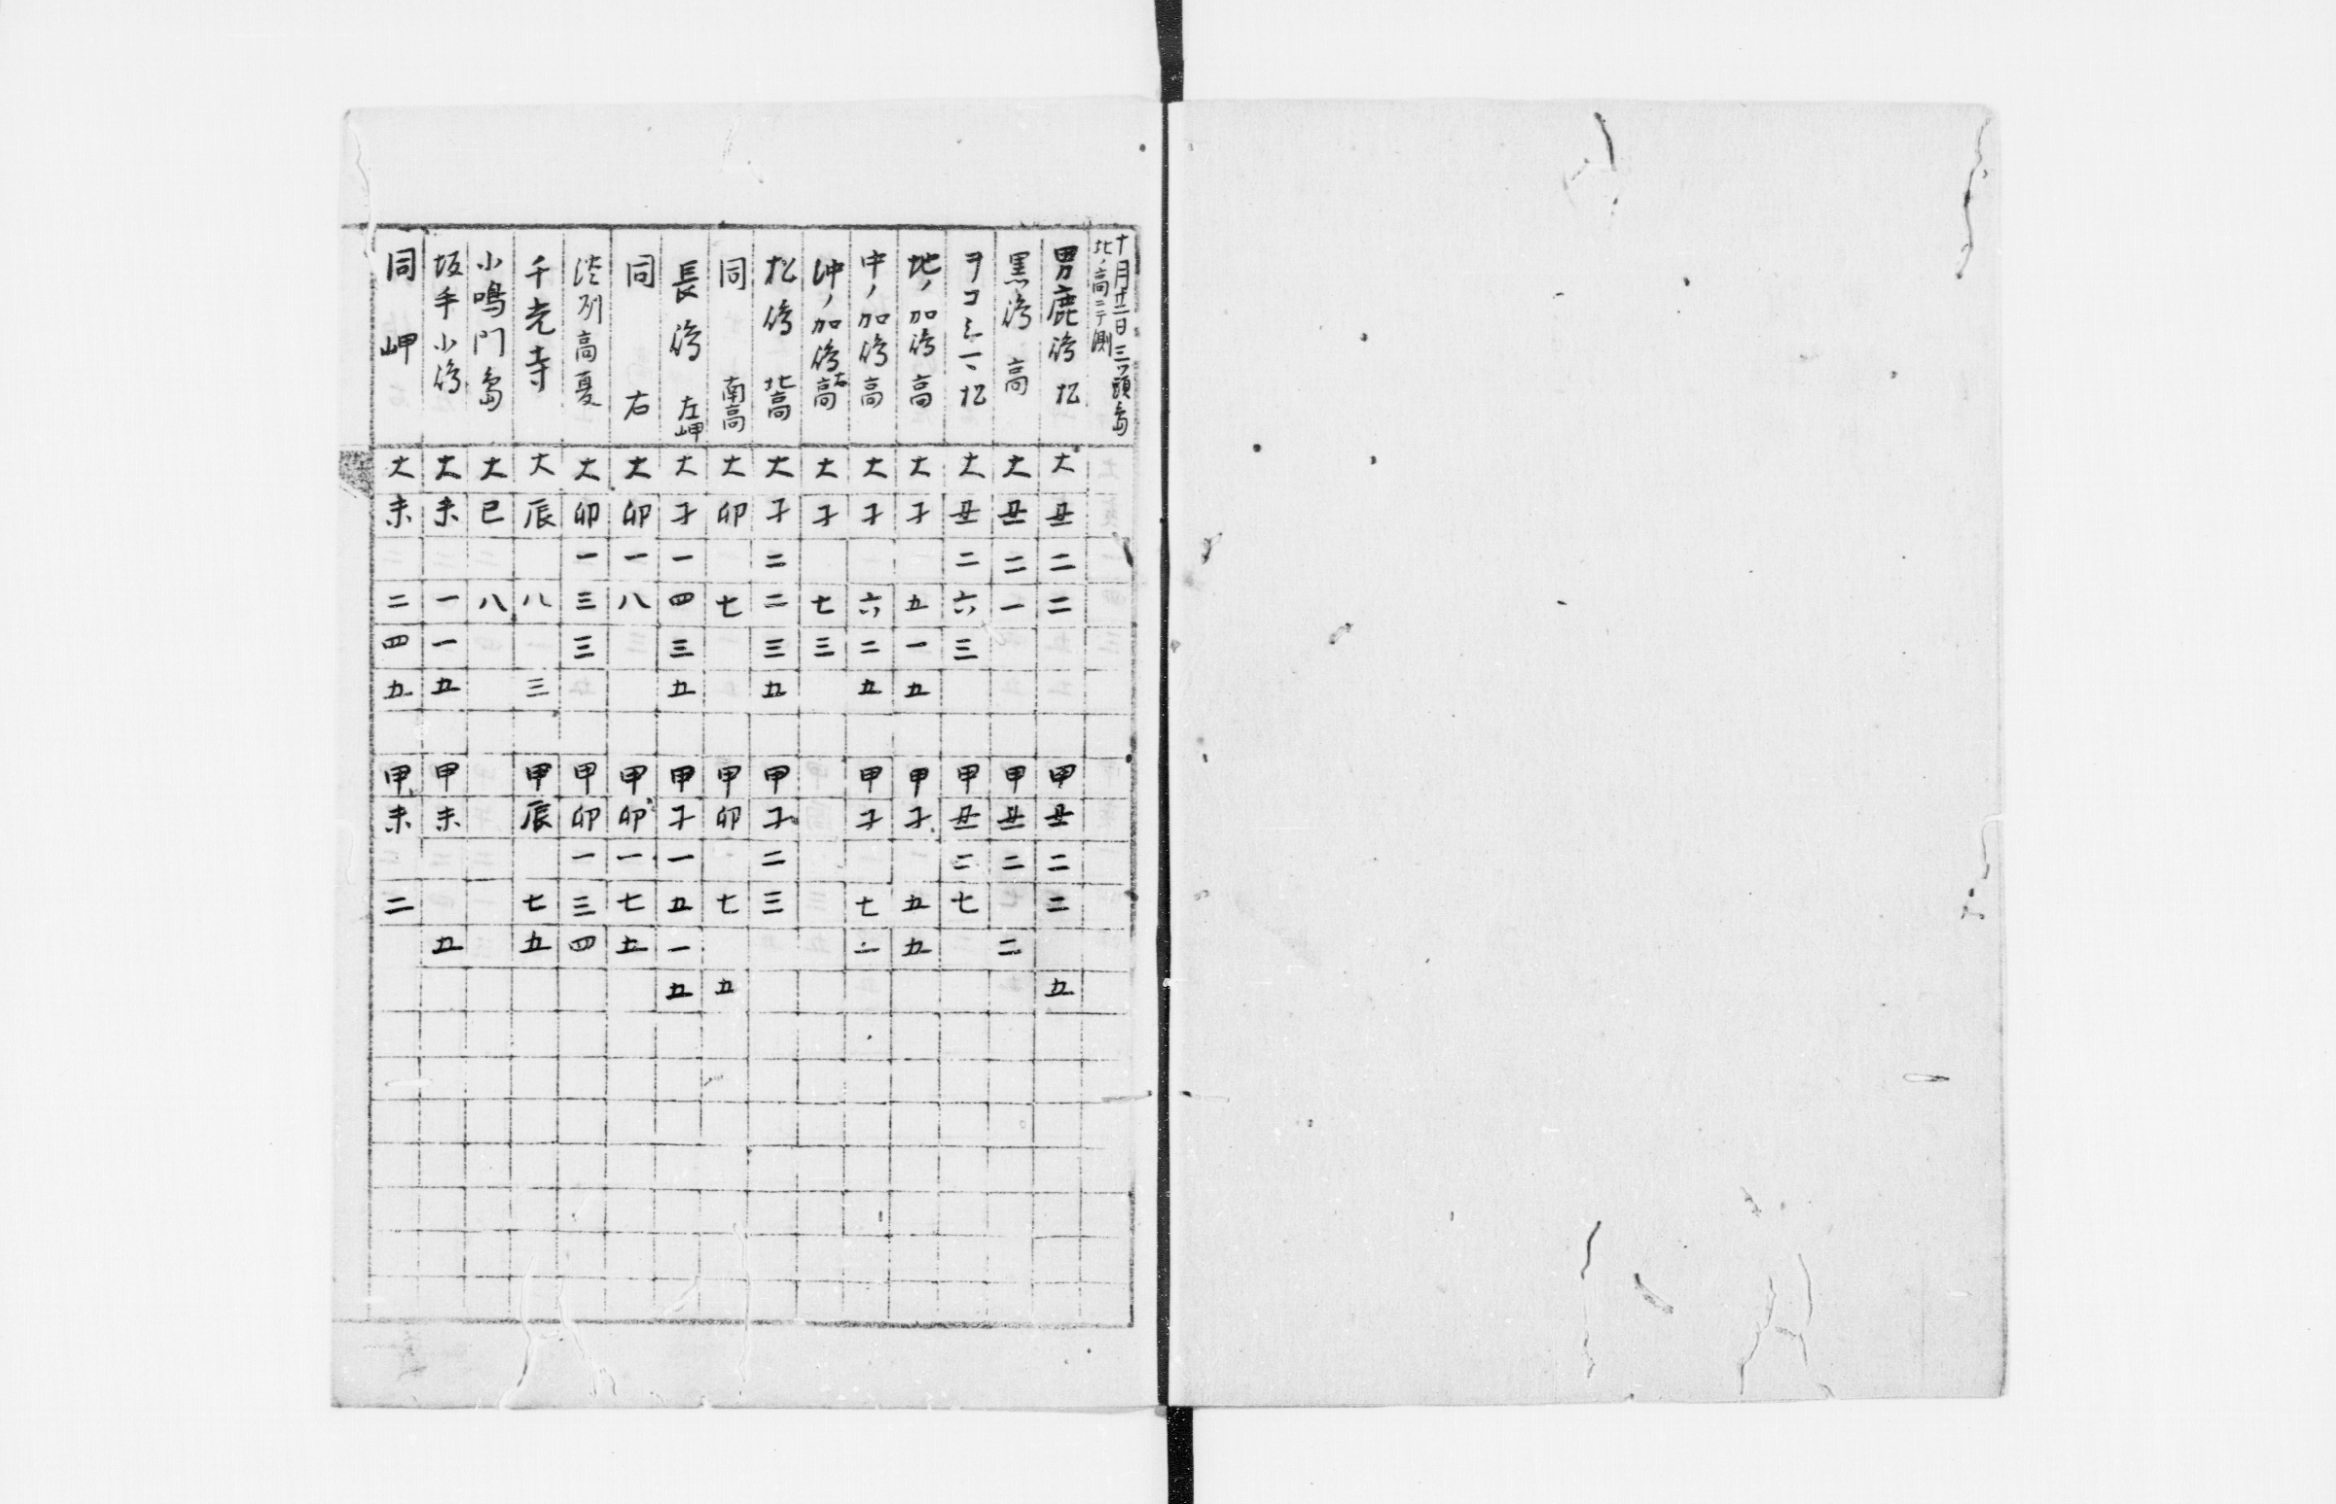 十月廿二日三ツ頭島
北ノ高ニテ測
男鹿島 松 大丑二二 甲丑二二 五
黒島 高 大丑二一 甲丑二 二
ヲコミ 松 大丑二六三 甲丑二七
地ノ加島 高 大子 五一五 甲子 五五
中ノ加島 高 大子 六二五 甲子 七二
沖ノ加島 右高 大子 七三
松島 北高 大子二二三五 甲子二三
同 南高 大卯 七 甲卯 七 五
長島 左岬 大子一四三五 甲子一五一五
同 右 大卯一八 甲卯一七五
淡州高夏 大卯一三三 甲卯一三四
千光寺 大辰 八 三 甲辰 七五
小鳴門島 大巳 八
坂手小島 大未 一一五 甲未 五
同 岬 大未 二四五 甲未 二